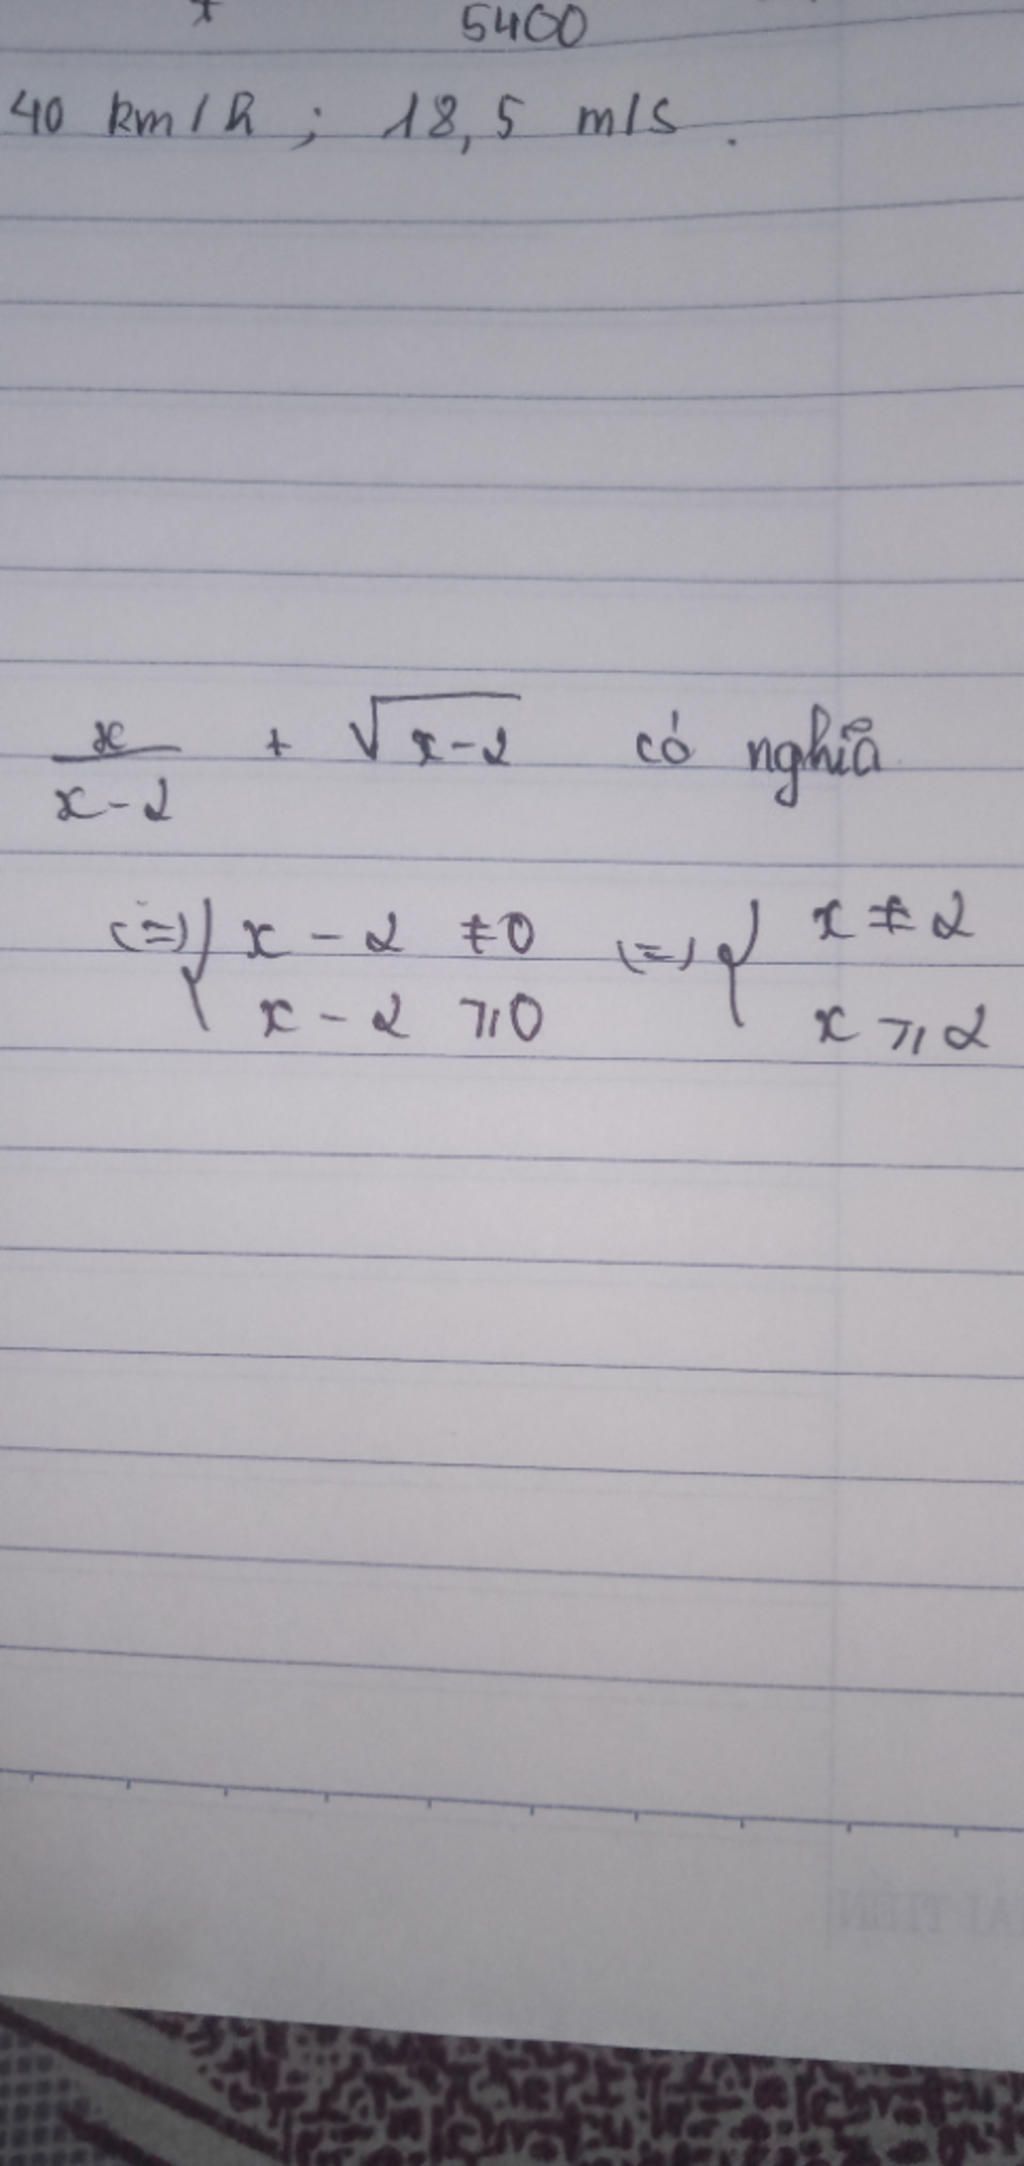 5400
40 km/h ; 18,5 m/s .
x/(x-2) + √(x-2) có nghĩa
(=) { x - 2 ≠ 0 (=) { x ≠ 2
x - 2 ⩾ 0 x ⩾ 2